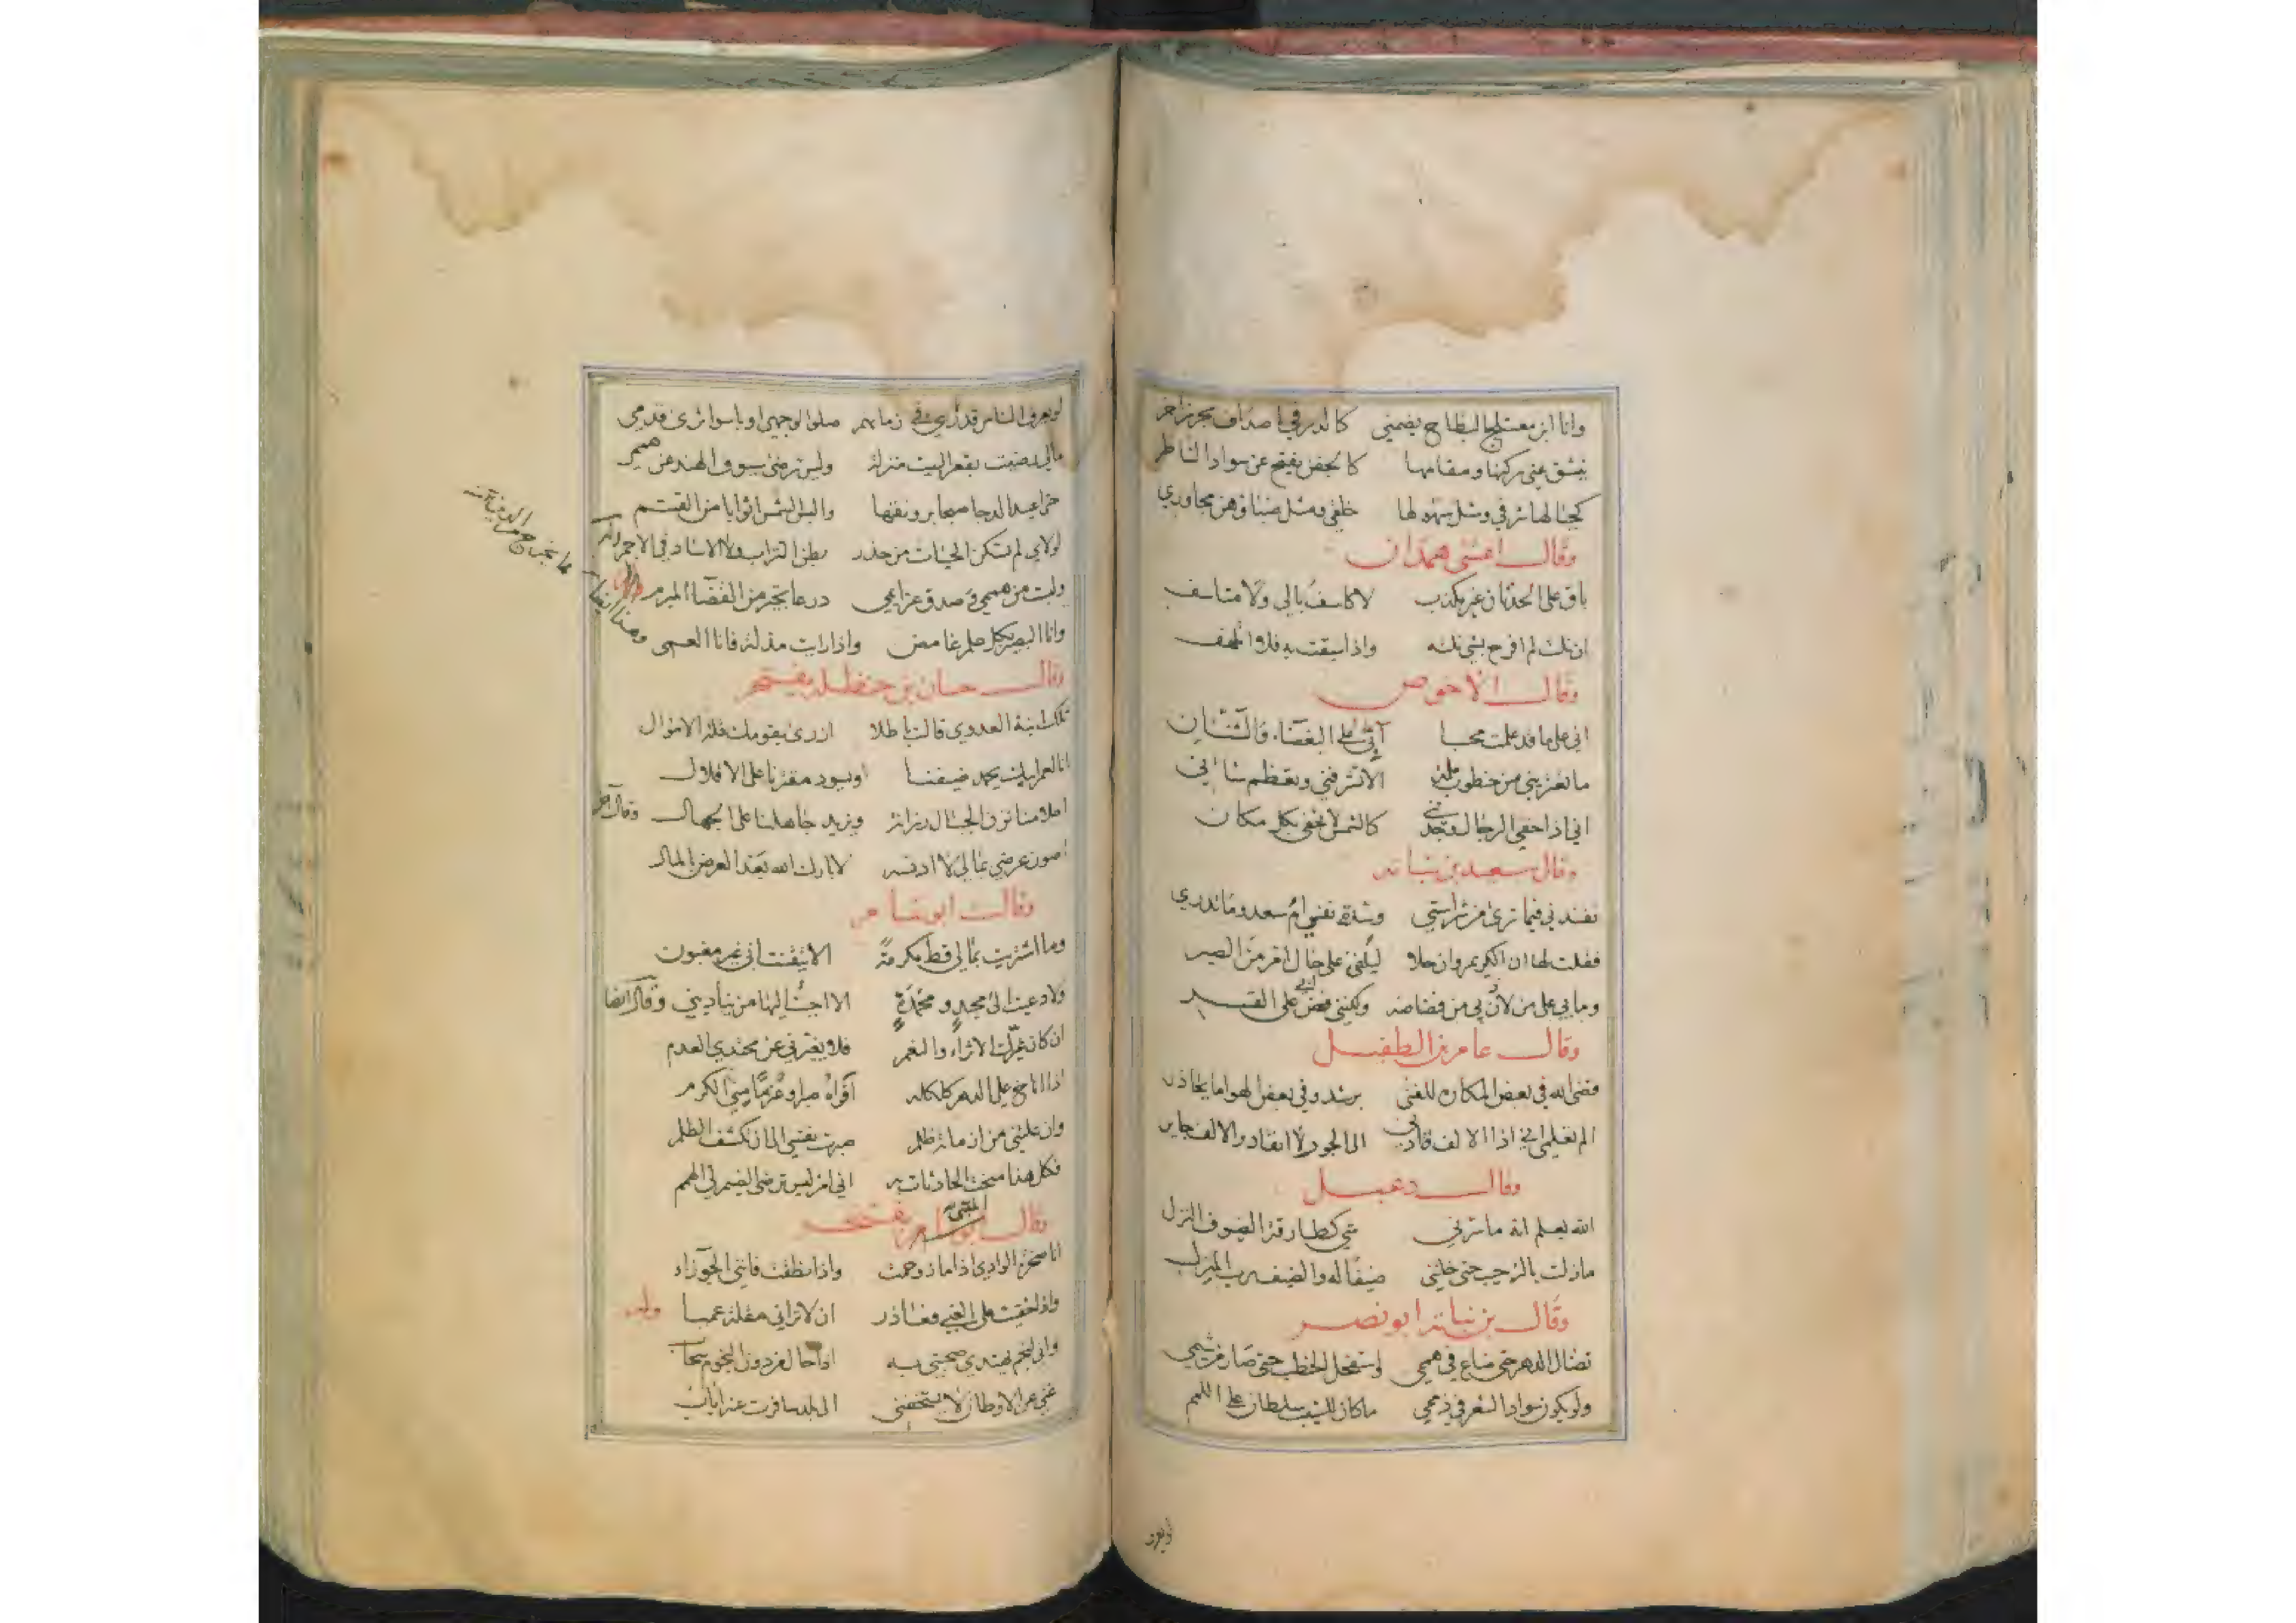 وانا ابن معتلج البطاح يضمني كالدر في اصداف بحر زاخر
ينشق عني ركنها ومقامها كالجفن يفتح عن سواد الناظر
كجبالها شرفي ومثل سهولها خلقي ومثل ضبائهن مجاوري
وقال اعشى همدان
باق على الحدثان غير مكذب لا كاسف بالي ولا متاسف
ان نلت لم افرح بشي نلته واذا سبقت به فلا اتلهف
وقال الاحوص
اني على ما قد علمت محسد آنمي على البغضاء والشنآن
ما تعتريني من خطوب ملمة الا تشرفني وتعظم شاني
اني اذا خفي الرجال وجدتني كالشمس لا تخفى بكل مكان
وقال سعيد بن نباته
تفندني فيما ترى من شراستي وشدة نفسي ام سعد وما تدري
فقلت لها ان الكريم وان حلا ليلفى على حال امر من الصبر
وما بي على من لان لي من فضاضة ولكنني فض ابي على القسر
وقال عامر بن الطفيل
قضى الله في بعض المكاره للفتى برشد وفي بعض الهوا ما يحاذر
الم تعلمي اني اذا الالف قادني الى الجور لا انقاد والالف جاير
وقال دعبل
الله يعلم انه ما سرني شي كطارقة الضيوف النزل
ما زلت بالترحيب حتى خلتني ضيفا له والضيف رب المنزل
وقال بن نباته ابو نصر
تضال الدهر حتى ضاع في هممي واستفحل الخطب حتى صار من شيمي
ولو يكون سواد الشعر في ذممي ما كان للشيب سلطان على اللمم
لو يعرف
لو يعرف الناس قدري في زمانهم صلوا لوجهي او باسوا ثرى قدمي
مالي رضيت بقعر البيت منزلة وليس ترضى سيوف الهند عن هممي
لولاي لم تسكن الحيات من حذر بطن التراب ولا الاساد في الاجم
ولبست من هممي وصدق عزائمي درعا تجير من القضاء المبرم
وانا البصير بكل علم غامض واذا رايت مذلة فانا العمى
وقال حسان بن حنظلة يفتخر
تلك ابنة العدوي قالت باطلا ازرى بقومك قلة الاموال
انا لعمر ابيك يحمد ضيفنا ويسود مقترنا على الاقلال
احلامنا تزن الجبال رزانة ويزيد جاهلنا على الجهال وقال آخر
اصون عرضي بمالي لا ادنسه لا بارك الله بعد العرض بالمال
وقال ابو
وما اشتريت بمالي قط مكرمة الا تيقنت اني غير مغبون
ولا دعيت الى مجد ومحمدة الا اجبت اليها من يناديني وقال ايضا
اذا اناخ علي الدهر كلكله اقراه صبرا وعزما مني الكرم
وقال المتنبي يفتخر
انا صخرة الوادي اذا ما زوحمت واذا نطقت فانني الجوزاء
واذا خفيت على الغبي فعاذر ان لا تراني مقلة عميا وله
واني لنجم يهتدي صحبتي به اذا حال من دون النجوم سحاب
غني عن الاوطان لا يستخفني الى بلد سافرت عنه اياب